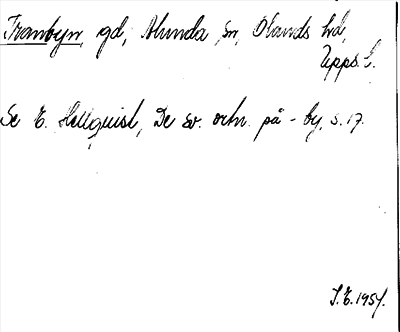 Franbyn, gd, Alunda sn, Olands hd,
Upps. l.
Se E. Hellquist, De sv. ortn. på - by, s. 17.
S.E. 1954.